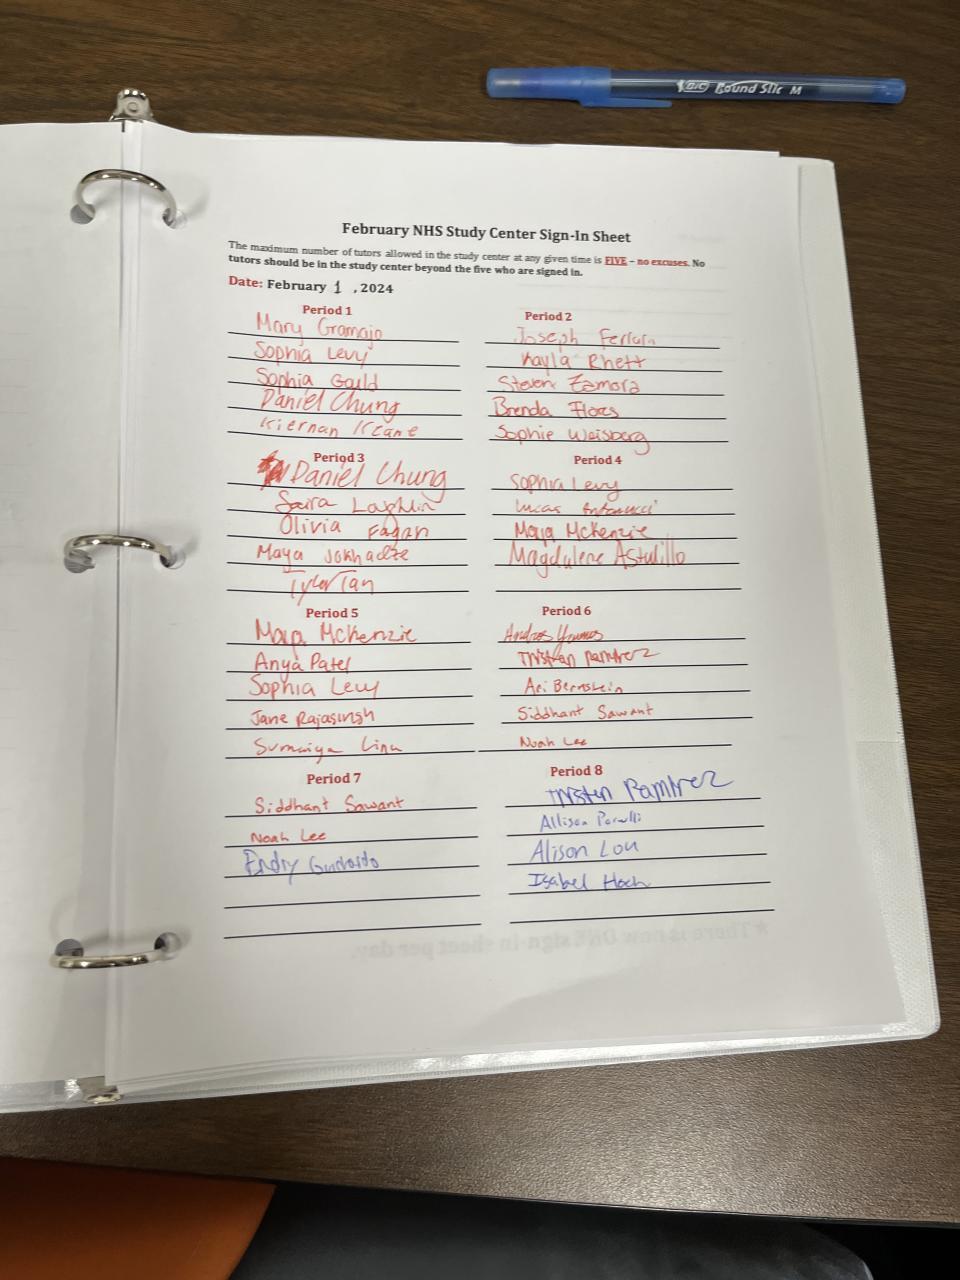 BIC Round Stic M
February NHS Study Center Sign-In Sheet
The maximum number of tutors allowed in the study center at any given time is FIVE – no excuses. No
tutors should be in the study center beyond the five who are signed in.
Date: February 1 , 2024
Period 1
Mary Gramajo
Sophia Levy
Sophia Gould
Daniel Chung
Kiernan Keane
Period 2
Joseph
Kayla Rhett
Steven Zamora
Brenda Flores
Sophie Weisberg
Period 3
Daniel Chung
Saira Laghlin
Olivia Fagan
Maya Jokhadze
Tyler Tan
Period 4
Sophia Levy
Lucas Antonucci
Maya McKenzie
Magdalene Astudillo
Period 5
Maya McKenzie
Anya Patel
Sophia Levy
Jane Rajasingh
Sumaiya
Period 6
Andres
Tristen Ramirez
Ari Bernstein
Siddhant Sawant
Noah Lee
Period 7
Siddhant Sawant
Noah Lee
Period 8
Tristen Ramirez
Allison
Alison Lou
Isabel Hoch
*There is now ONE sign-in sheet per day.